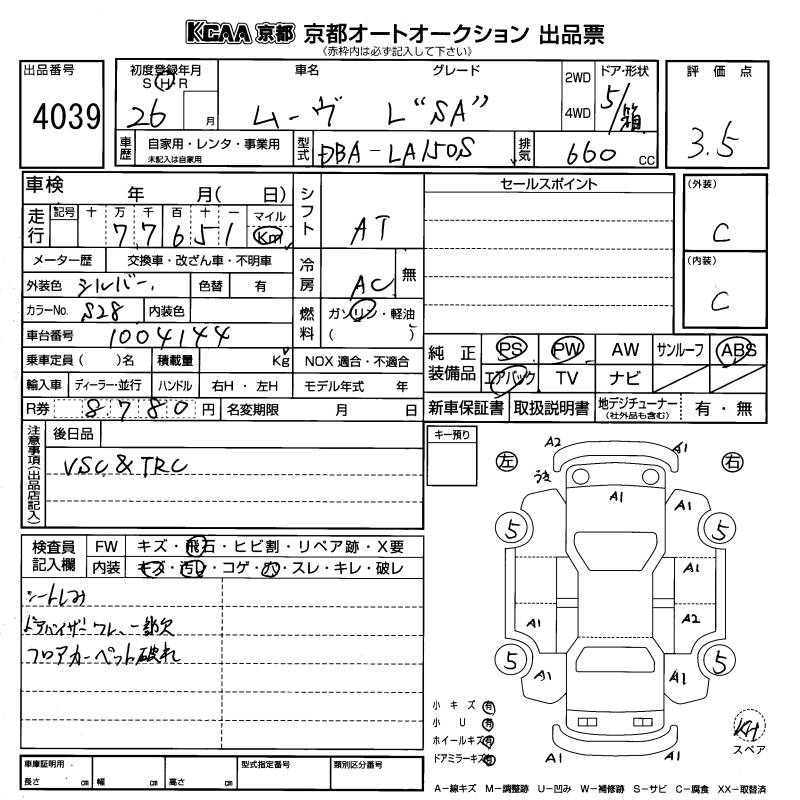 KCAA 京都 京都オートオークション 出品票
《赤枠内は必ず記入して下さい》
出品番号
4039
初度登録年月
S H R
26 月
車名 グレード
ムーヴ L "SA"
2WD
4WD
ドア・形状
5/箱
評価点
3.5
車歴 自家用・レンタ・事業用
未記入は自家用
型式 DBA-LA150S
排気 660 CC
車検 年 月( 日)
走行 記号 十 万 千 百 十 一 マイル
7 7 6 5 1 Km
メーター歴 交換車・改ざん車・不明車
外装色 シルバー 色替 有
カラーNo. S28 内装色
車台番号 1004144
乗車定員( )名 積載量 Kg NOX 適合・不適合
輸入車 ディーラー・並行 ハンドル 右H・左H モデル年式 年
R券 8780 円 名変期限 月 日
シフト AT
冷房 AC 無
燃料 ガソリン・軽油
( )
セールスポイント
(外装)
C
(内装)
C
純正装備品 PS PW AW サンルーフ ABS
エアバック TV ナビ
新車保証書 取扱説明書 地デジチューナー
(社外品も含む) 有・無
注意事項(出品店記入)
後日品
VSC & TRC
キー預り
左 右
A2 A1
うき A1 A1
5 5
A1
A1 A2
5 5
A1 A1
A1 A1
検査員記入欄
FW キズ・飛石・ヒビ割・リペア跡・X要
内装 キズ・汚レ・コゲ・穴・スレ・キレ・破レ
シートしみ
ドアバイザーワレ、一部欠
フロアカーペット破れ
小キズ 有
小U 有
ホイールキズ 有
ドアミラーキズ 有
スペア
車庫証明用
長さ cm 幅 cm 高さ cm
型式指定番号
類別区分番号
A-線キズ M-調整跡 U-凹み W-補修跡 S-サビ C-腐食 XX-取替済